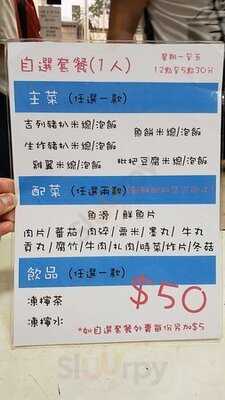 自選套餐(1人)
星期一至五
12點至5點30分
主菜 (任選一款)
吉列豬扒米線/泡飯
魚餅米線/泡飯
生炸豬扒米線/泡飯
雞翼米線/泡飯
枇杷豆腐米線/泡飯
配菜 (任選兩款)
魚滑/鮮魚片
肉片/蕃茄/肉碎/粟米/墨丸/牛丸
貢丸/腐竹/牛肉/扎肉/時菜/炸片/冬菇
飲品 (任選一款)
$50
凍檸茶
凍檸水
*如自選套餐外賣每份另加$5
slurrpy